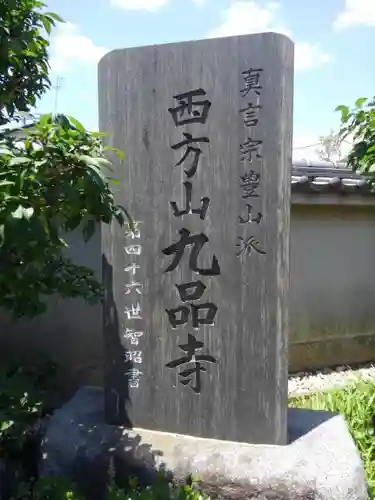 真言宗豊山派
西方山九品寺
第四十六世智昭書